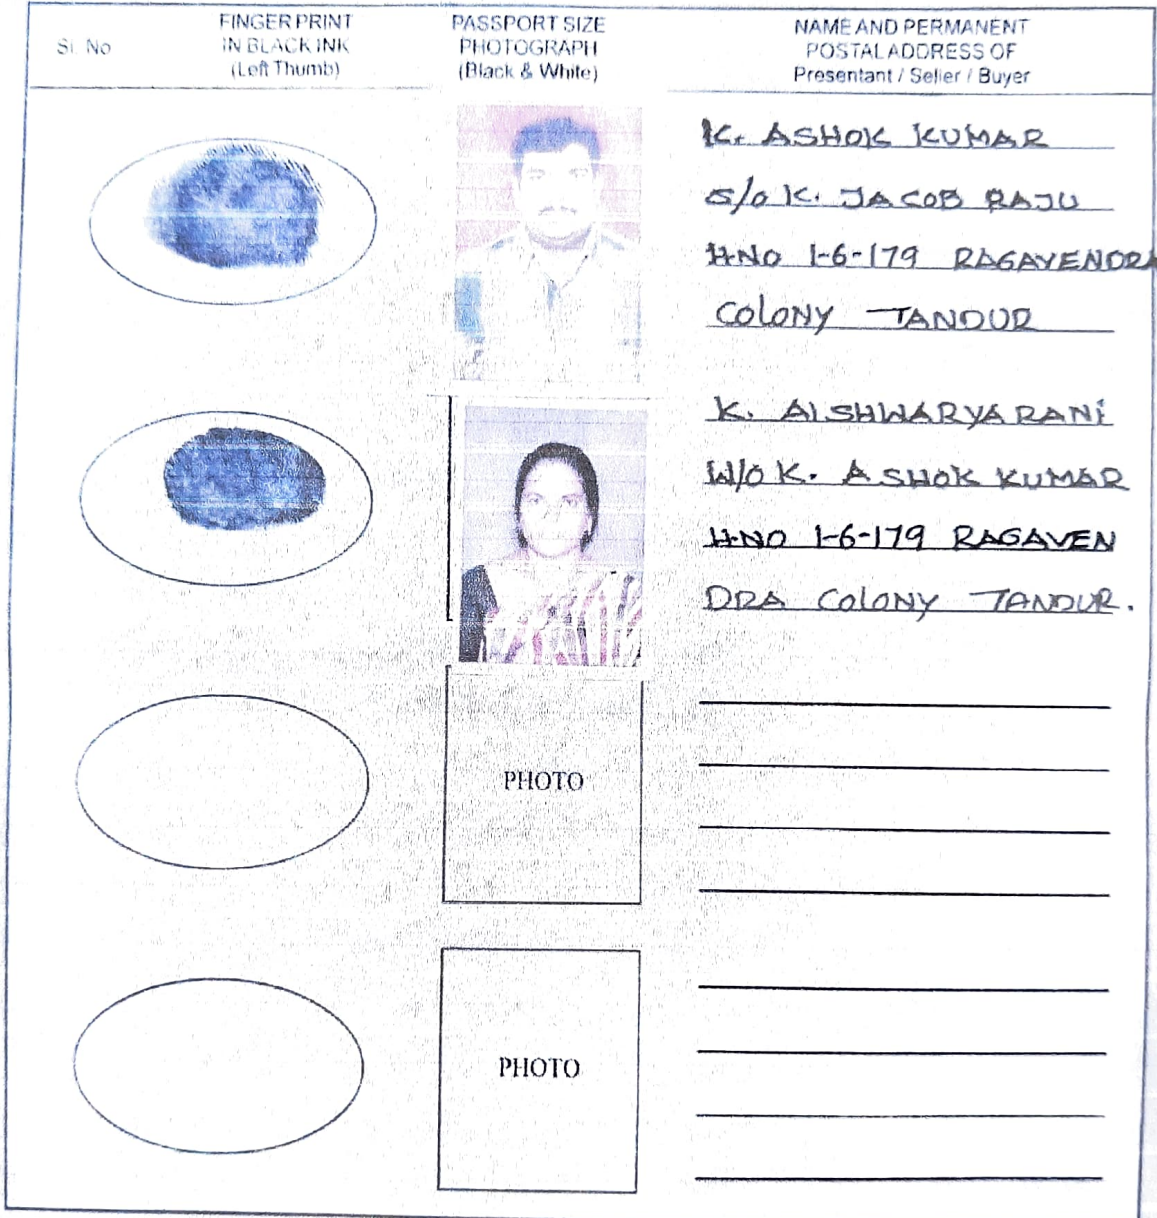 Sl. No
FINGER PRINT
IN BLACK INK
(Left Thumb)
PASSPORT SIZE
PHOTOGRAPH
(Black & White)
NAME AND PERMANENT
POSTAL ADDRESS OF
Presentant / Seller / Buyer
K. ASHOK KUMAR
S/o K. JACOB RAJU
H.NO 1-6-179 RAGAVENDRA
COLONY TANDUR
K. AISHWARYA RANi
W/O K. ASHOK KUMAR
H.NO 1-6-179 RAGAVEN
DRA COLONY TANDUR.
PHOTO
PHOTO